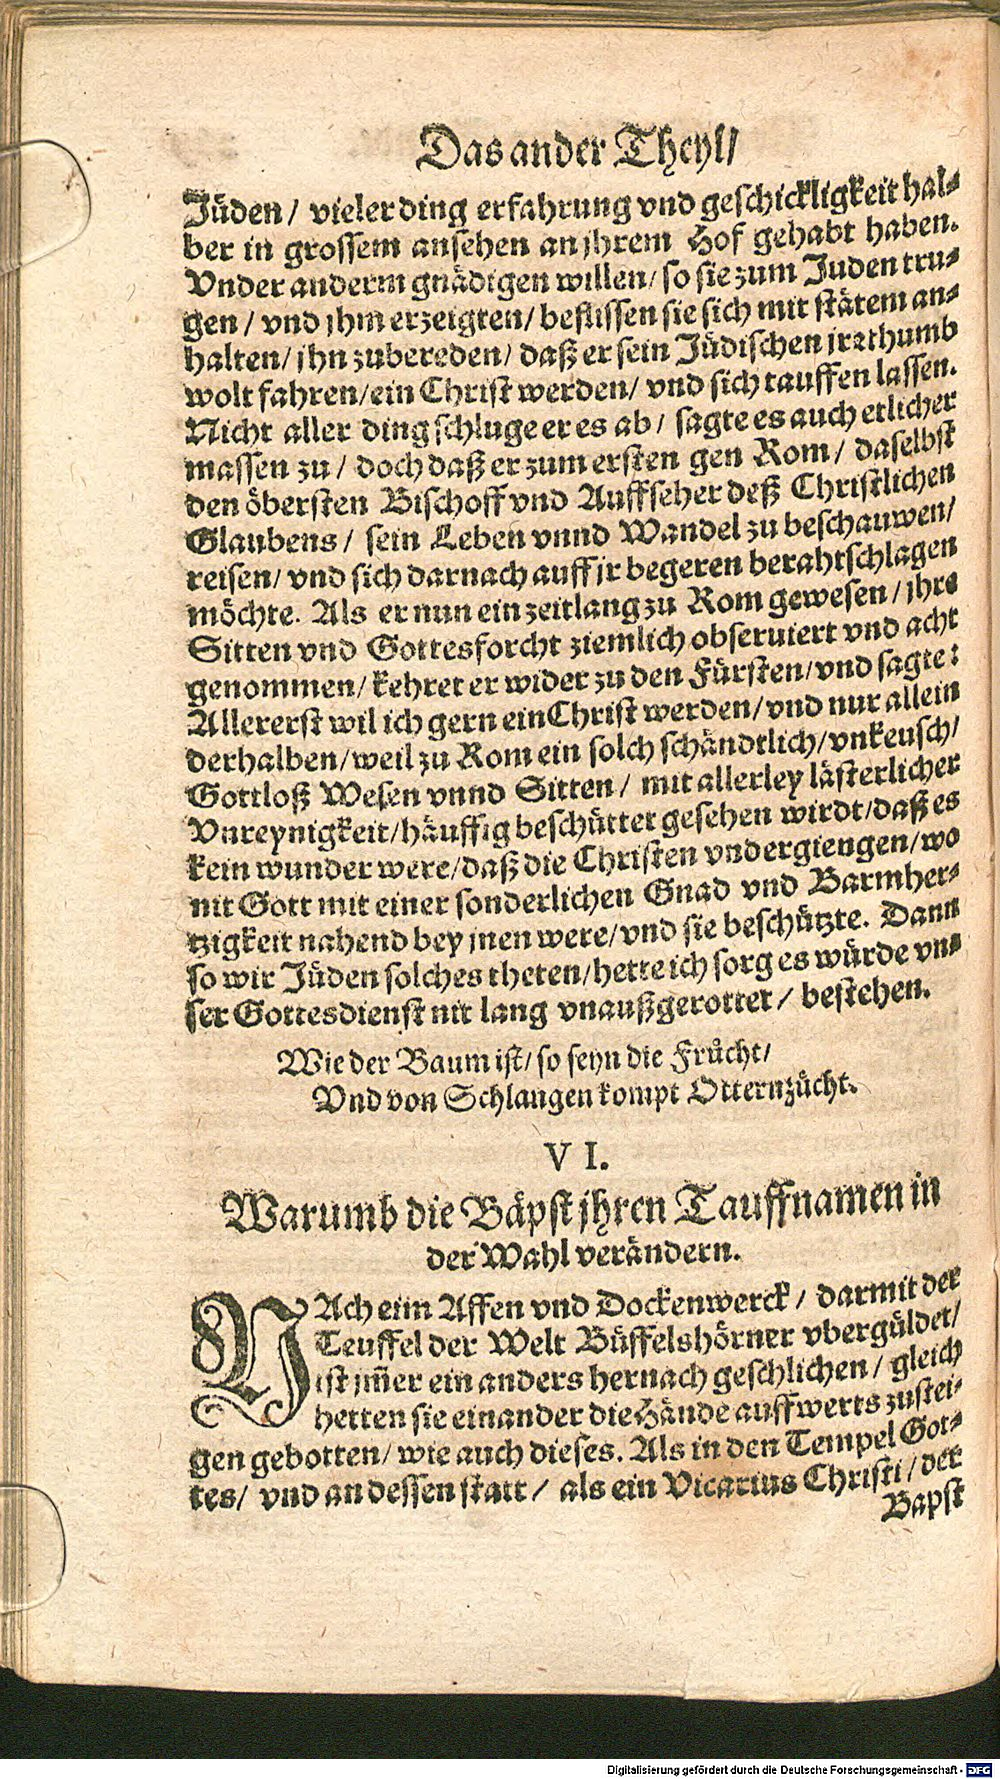 Das ander Theyl/
Jüden / vieler ding erfahrung vnd geschickligkeit hal⸗
ber in grossem ansehen an jhrem Hof gehabt haben.
Vnder anderm gnädigen willen/ so sie zum Juden tru⸗
gen / vnd jhm erzeigten/ beflissen sie sich mit stätem an⸗
halten/ jhn zubereden/ daß er sein Jüdischen jrrthumb
wolt fahren/ ein Christ werden/ vnd sich tauffen lassen.
Nicht aller ding schluge er es ab / sagte es auch etlicher
massen zu / doch daß er zum ersten gen Rom / daselbst
den öbersten Bischoff vnd Auffseher deß Christlichen
Glaubens / sein Leben vnnd Wandel zu beschauwen/
reisen/ vnd sich darnach auff jr begeren berahtschlagen
möchte. Als er nun ein zeitlang zu Rom gewesen / jhre
Sitten vnd Gottesforcht ziemlich obseruiert vnd acht
genommen/ kehret er wider zu den Fürsten/ vnd sagte:
Allererst wil ich gern ein Christ werden/ vnd nur allein
derhalben/ weil zu Rom ein solch schändtlich/ vnkeusch/
Gottloß Wesen vnnd Sitten / mit allerley lästerlicher
Vnreynigkeit/ häuffig beschüttet gesehen wirdt/ daß es
kein wunder were/ daß die Christen vndergiengen/ wo
nit Gott mit einer sonderlichen Gnad vnd Barmher⸗
tzigkeit nahend bey jnen were/ vnd sie beschützte. Dann
so wir Jüden solches theten/ hette ich sorg es würde vn⸗
ser Gottesdienst nit lang vnaußgerottet / bestehen.
Wie der Baum ist/ so seyn die Frücht/
Vnd von Schlangen kompt Otternzücht.
VI.
Warumb die Bäpst jhren Tauffnamen in
der Wahl verändern.
NAch eim Affen vnd Dockenwerck / darmit der
Teuffel der Welt Büffelshörner vbergüldet/
ist jm̃er ein anders hernach geschlichen / gleich
hetten sie einander die Hände auffwerts zustei⸗
gen gebotten/ wie auch dieses. Als in den Tempel Got⸗
tes/ vnd an dessen statt / als ein Vicarius Christi / der
Bapst
Digitalisierung gefördert durch die Deutsche Forschungsgemeinschaft - DFG